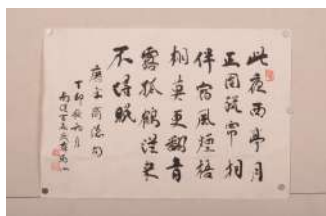 此夜西亭月
正圓疏帘相
伴宿風煙梧
桐莫更翻清
露孤鶴從來
不得眠
唐李商隱句
丁卯秋月